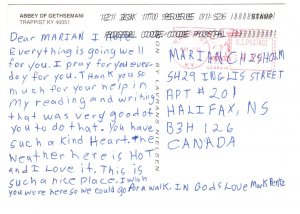 ABBEY OF GETHSEMANI
TRAPPIST KY 40051
U.S. POSTAGE
Dear MARIAN I Hope
Everything is going well
for you. I pray for you ever
day for you. Thank you so
much for your help in
My reading and writing
that was very good of
you to do that. You have
such a Kind Heart. The
Weather here is HOT
and I Love it. This is
such a nice place. I wish
you were here so we could go for a walk. IN GODS LOVE Mark
MARIAN CHISHOLM
5429 INGLIS STREET
APT # 201
HALIFAX, NS
B3H 1Z6
CANADA